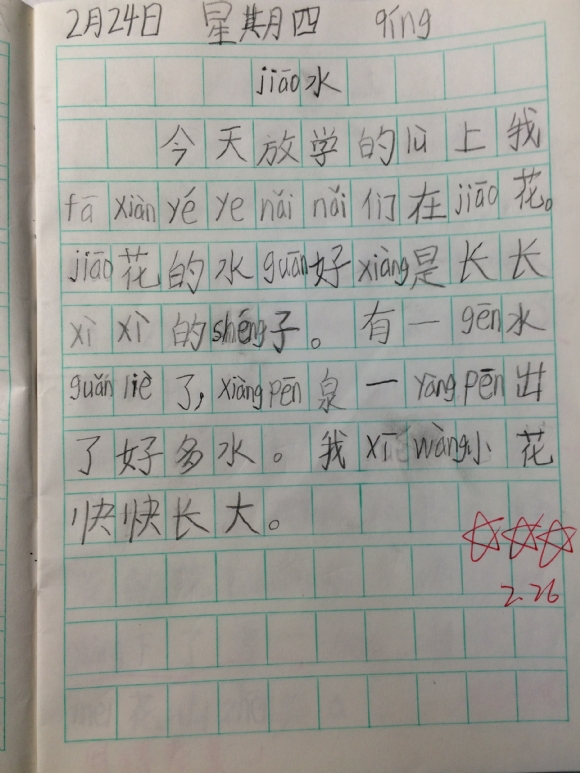 2月24日 星期四 qíng
jiāo水
今天放学的lù上我
fā xiàn yé ye nǎi nǎi们在jiāo花。
jiāo花的水guǎn好xiàng是长长
xì xì的shéng子。有一gēn水
guǎn liè了,xiàng pēn泉一yàng pēn出
了好多水。我xī wàng小花
快快长大。
2.26